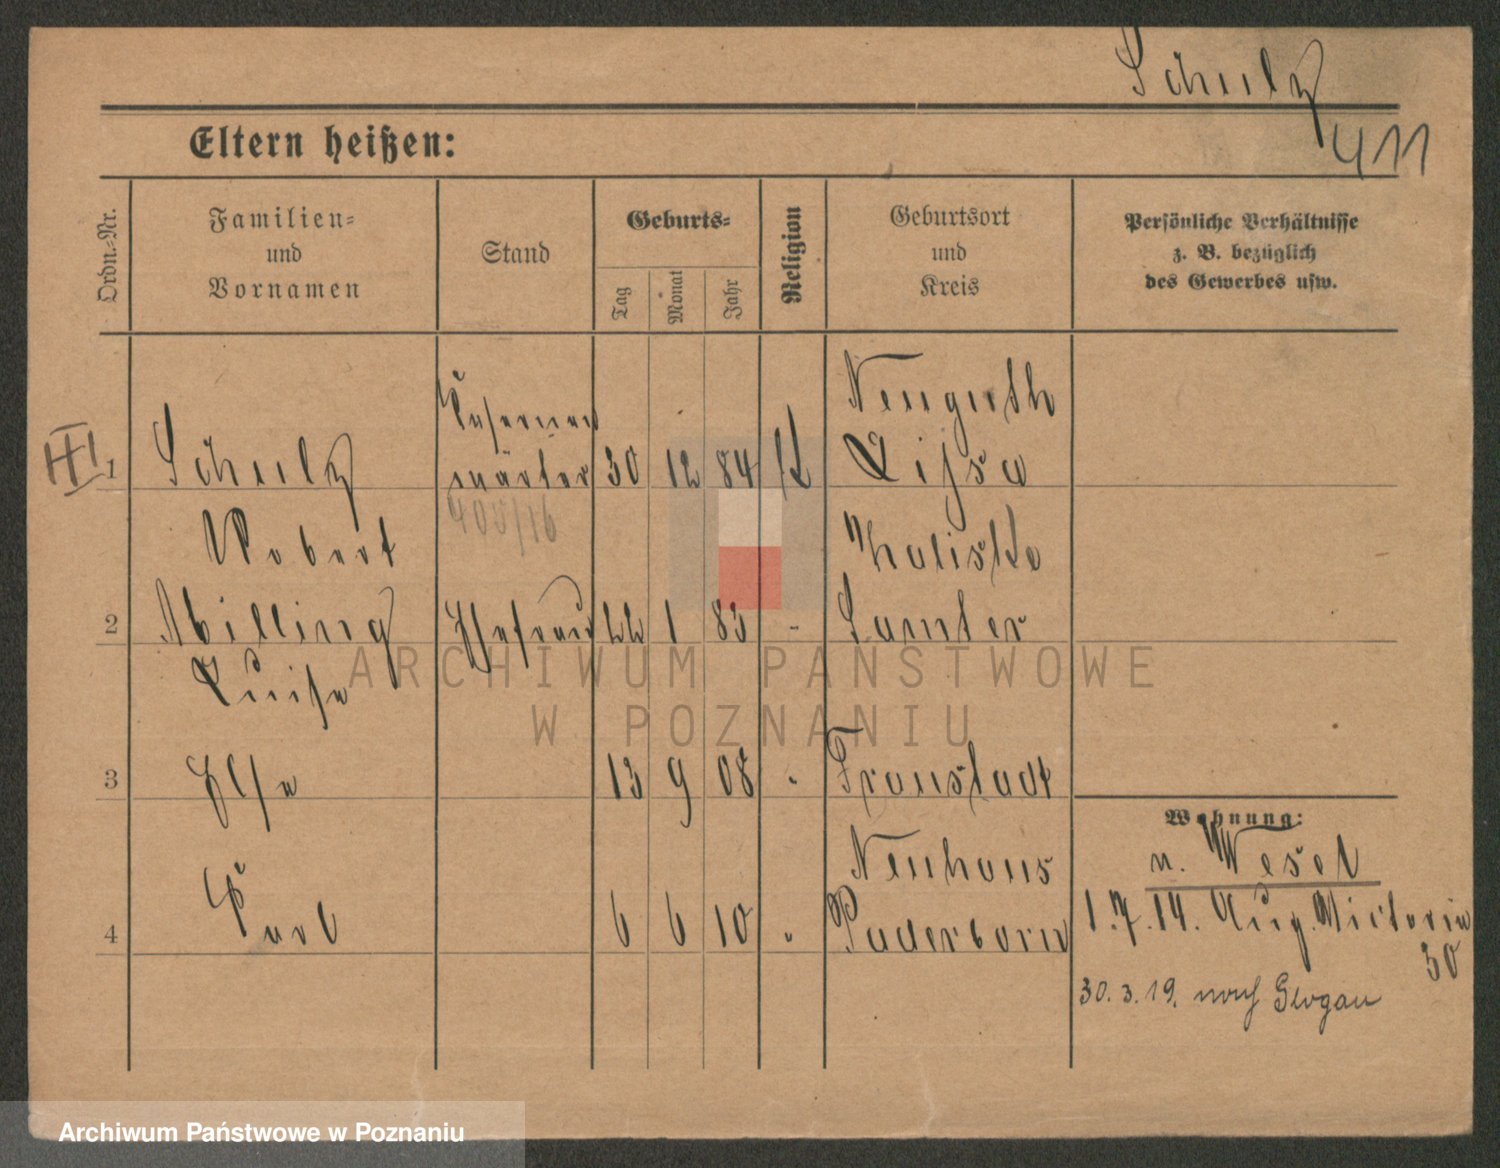 Schulz
411
Eltern heißen:
Ordn.-Nr.
Familien-
und
Vornamen
Stand
Geburts-
Tag
Monat
Jahr
Religion
Geburtsort
und
Kreis
Persönliche Verhältnisse
z. B. bezüglich
des Gewerbes usw.
III
1
Schulz
Robert
Kasernen
wärter
30 12 84
Neuguth
Lissa
2
Milling
Luise
Ehefrau
22 1 83
"
Samter
3
Else
13 9 08
"
Fraustadt
4
Karl
6 6 10
"
Neuhaus
Paderborn
Wohnung:
n. Wesel
1.7.14. Aug. Victoria
30
30.3.19. nach Glogau
ARCHIWUM PAŃSTWOWE
W POZNANIU
Archiwum Państwowe w Poznaniu